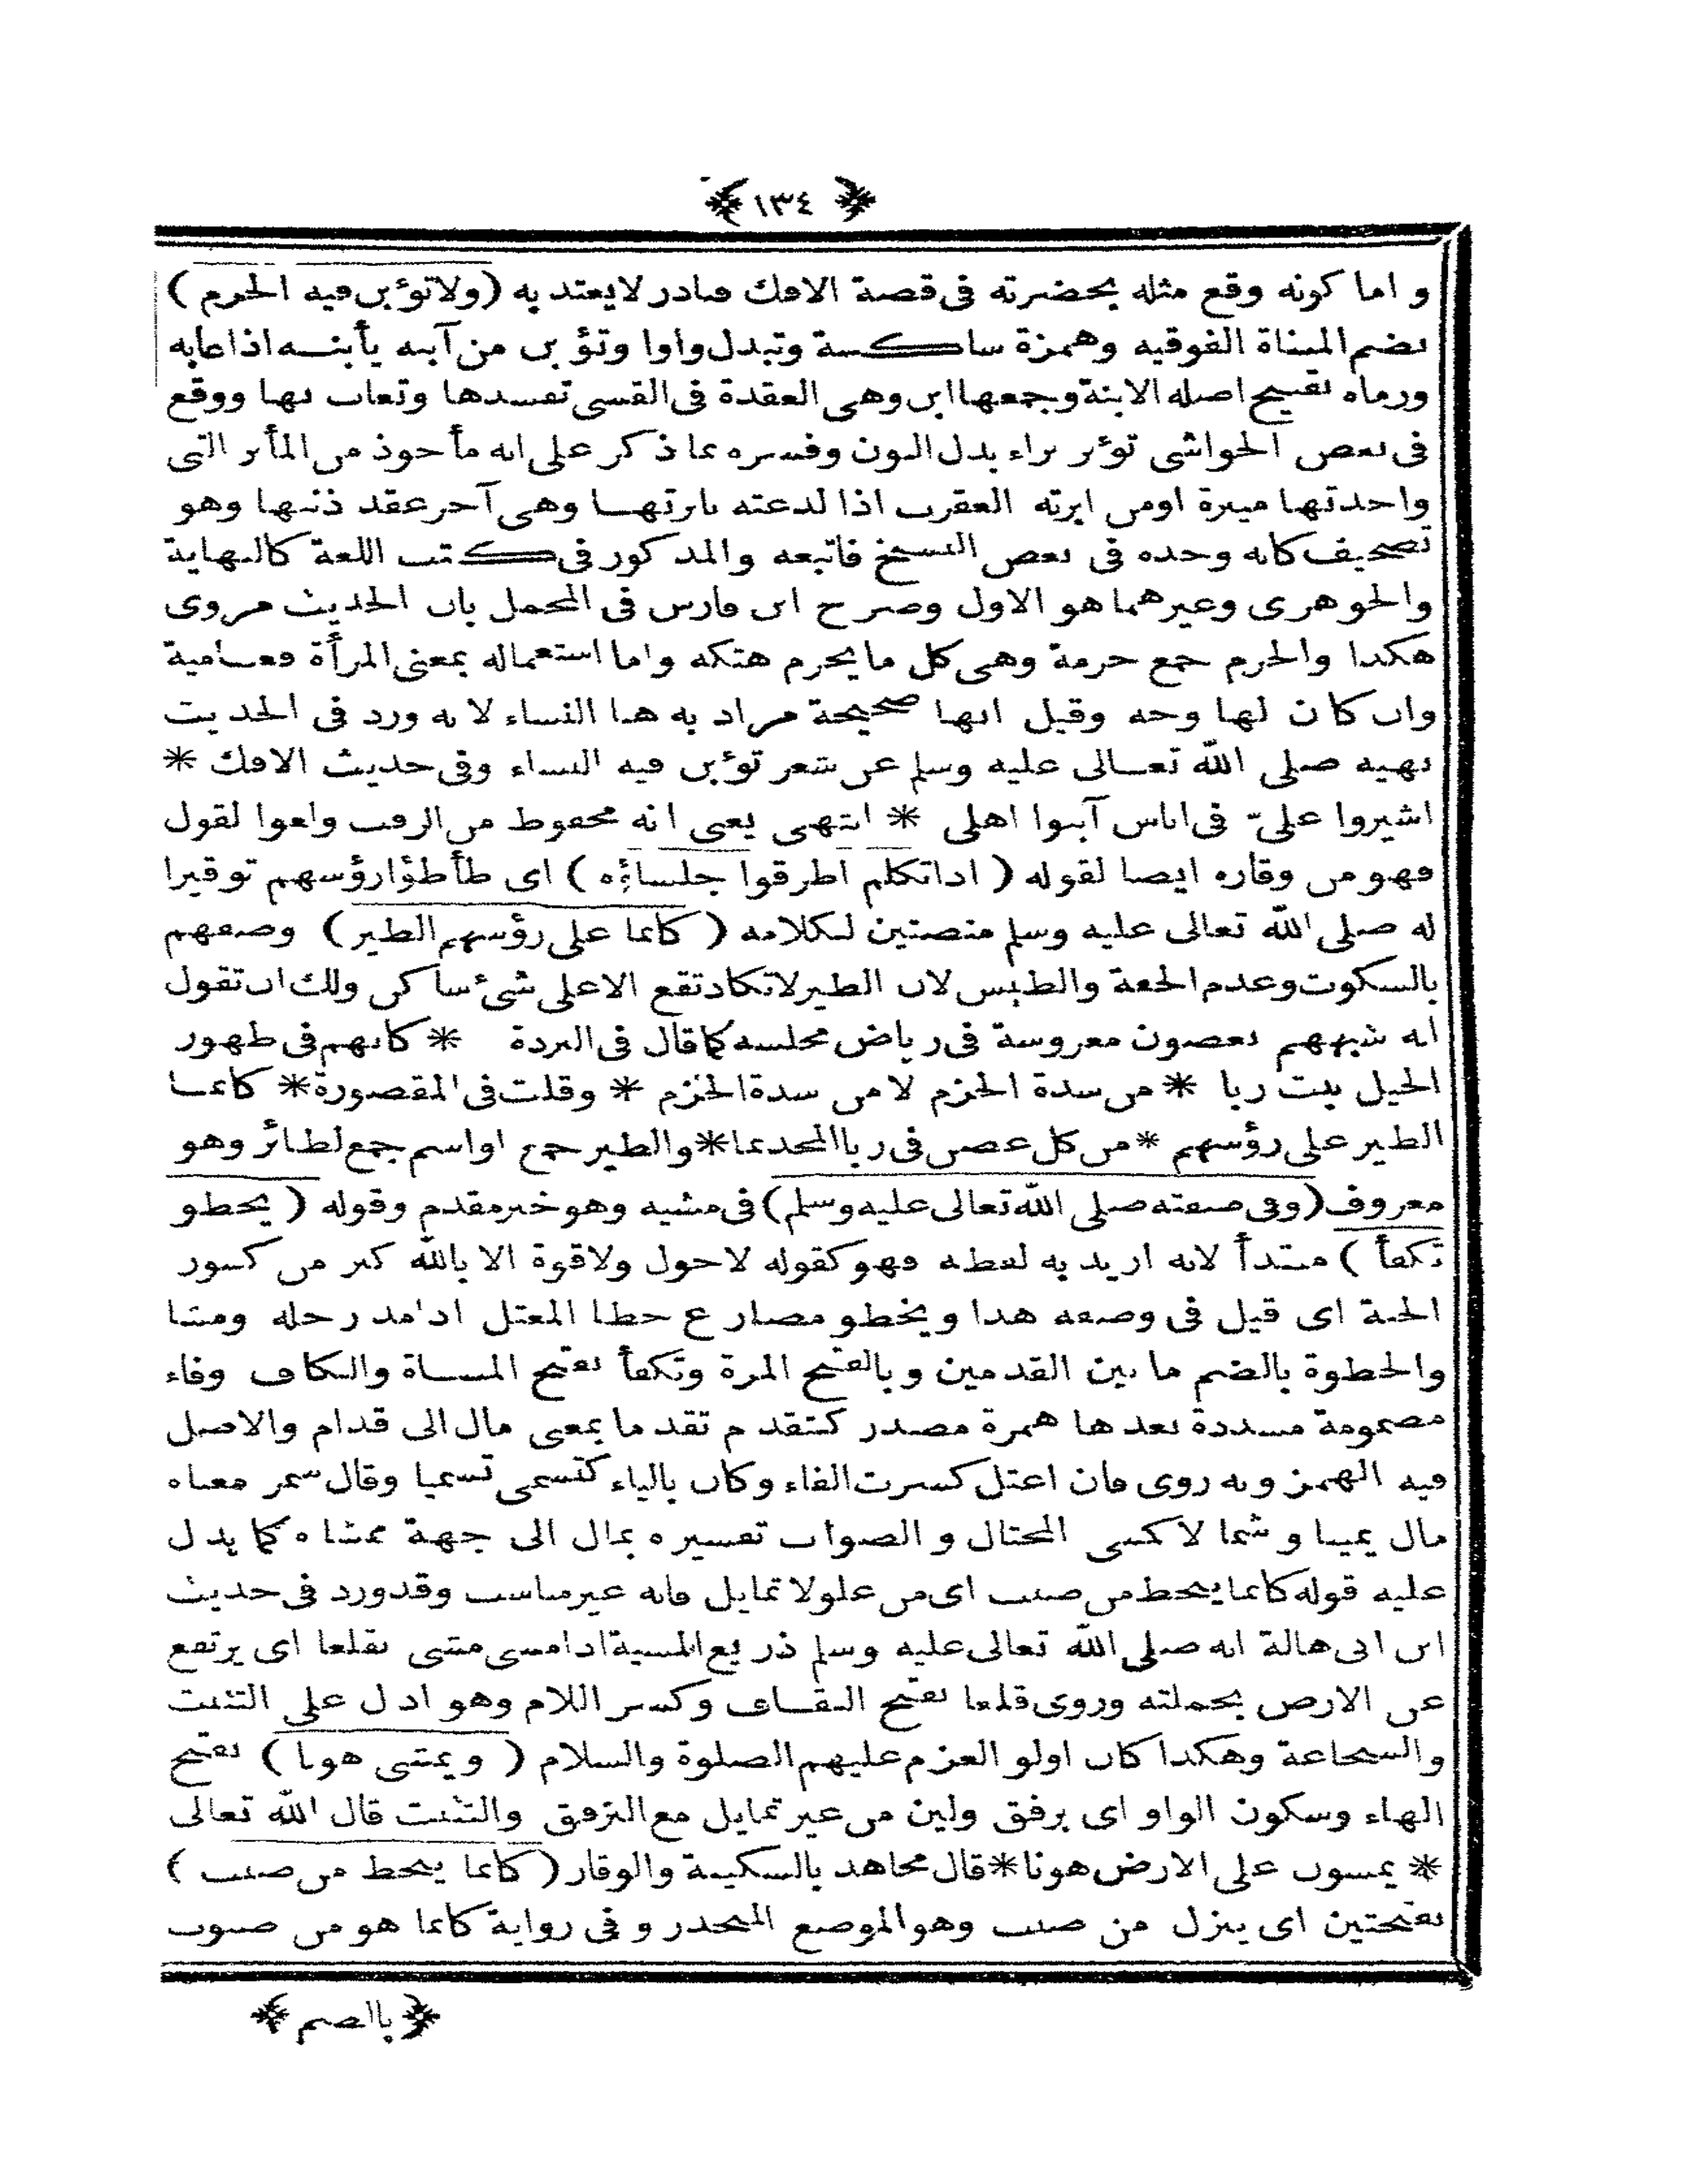 ﴿ ١٣٤ ﴾
واما كونه وقع مثله بحضرته فى قصة الافك فنادر لايعتد به (ولاتؤبن فيه الحرم)
بضم المثناة الفوقيه وهمزة ساكنة وتبدل واوا وتؤبن من آبنه يأبنه اذا عابه
ورماه بقبيح اصله الابنة وجمعها ابن وهى العقدة فى القسى تفسدها وتعاب بها ووقع
فى بعض الحواشى تؤبر براء بدل النون وفسره بما ذكر على انه مأخوذ من المأبر التى
واحدتها ميبرة اومن ابرته العقرب اذا لدغته بابرتها وهى آخر عقد ذنبها وهو
تصحيف كانه وجده فى بعض النسخ فاتبعه والمذكور فى كتب اللغة كالنهاية
والجوهرى وغيرهما هو الاول وصرح ابن فارس فى المجمل بان الحديث مروى
هكذا والحرم جمع حرمة وهى كل ما يحرم هتكه واما استعماله بمعنى المرأة فعامية
وان كان لها وجه وقيل انها صحيحة مراد به هنا النساء لانه ورد فى الحديث
نهيه صلى الله تعالى عليه وسلم عن شعر تؤبن فيه النساء وفى حديث الافك *
اشيروا علىّ فى اناس آبنوا اهلى * انتهى يعنى انه محفوظ من الرفث ولغوا لقول
فهو من وقاره ايضا لقوله ( اذا تكلم اطرقوا جلساؤه ) اى طأطؤا رؤسهم توقيرا
له صلى الله تعالى عليه وسلم منصتين لكلامه ( كانما على رؤسهم الطير ) وصفهم
بالسكوت وعدم الخفة والطيش لان الطير لاتكاد تقع الاعلى شئ ساكن ولك ان تقول
انه شبههم بغصون مغروسة فى رياض مجلسه كما قال فى البردة * كانهم فى ظهور
الخيل نبت ربا * من شدة الحزم لا من شدة الحزم * وقلت فى المقصورة * كانما
الطير على رؤسهم * من كل غصن فى ربا المجد نما * والطير جمع او اسم جمع لطائر وهو
معروف (وفى صفته صلى الله تعالى عليه وسلم) فى مشيه وهو خبر مقدم وقوله ( يخطو
تكفأ ) مبتدأ لانه اريد به لفظه فهو كقوله لاحول ولاقوة الا بالله كنز من كنوز
الجنة اى قيل فى وصفه هذا ويخطو مضارع خطا المعتل اذا مد رجله ومشا
والخطوة بالضم ما بين القدمين وبالفتح المرة وتكفأ بفتح المثناة والكاف وفاء
مضمومة مشددة بعدها همزة مصدر كتقدم تقدما بمعنى مال الى قدام والاصل
فيه الهمز وبه روى فان اعتل كسرت الفاء وكان بالياء كتسمى تسميا وقال شمر معناه
مال يمينا وشمالا كمشى المختال والصواب تفسيره بمال الى جهة ممشاه كما يدل
عليه قوله كانما ينحط من صبب اى من علو لا تمايل فانه غير مناسب وقد ورد فى حديث
ابن ابى هالة انه صلى الله تعالى عليه وسلم ذريع المشية اذا مشى مشى تقلعا اى يرتفع
عن الارض بجملته وروى قلعا بفتح القاف وكسر اللام وهو ادل على التثبت
والشجاعة وهكذا كان اولو العزم عليهم الصلوة والسلام ( ويمشى هونا ) بفتح
الهاء وسكون الواو اى برفق ولين من غير تمايل مع الترفق والتثبت قال الله تعالى
* يمشون على الارض هونا * قال مجاهد بالسكينة والوقار ( كانما ينحط من صبب )
بفتحتين اى ينزل من صبب وهو الموضع المنحدر وفى رواية كانما هو من صبوب
﴿ بالضم ﴾